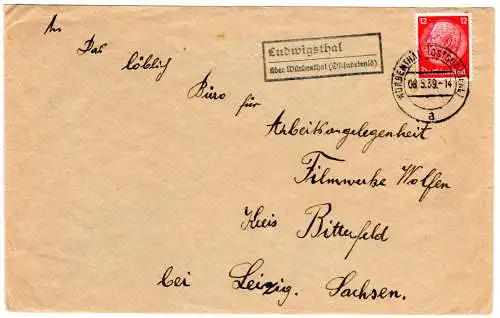 An
Das
löblich
Büro für
Arbeitsangelegenheit
Filmwerke Wolfen
Kreis Bitterfeld
bei Leizig. Sachsen.
Ludwigsthal
über Würbenthal (Ostsudetenld)
12 12
Deutsches Reich
WÜRBENTHAL
08.5.39.-14
a